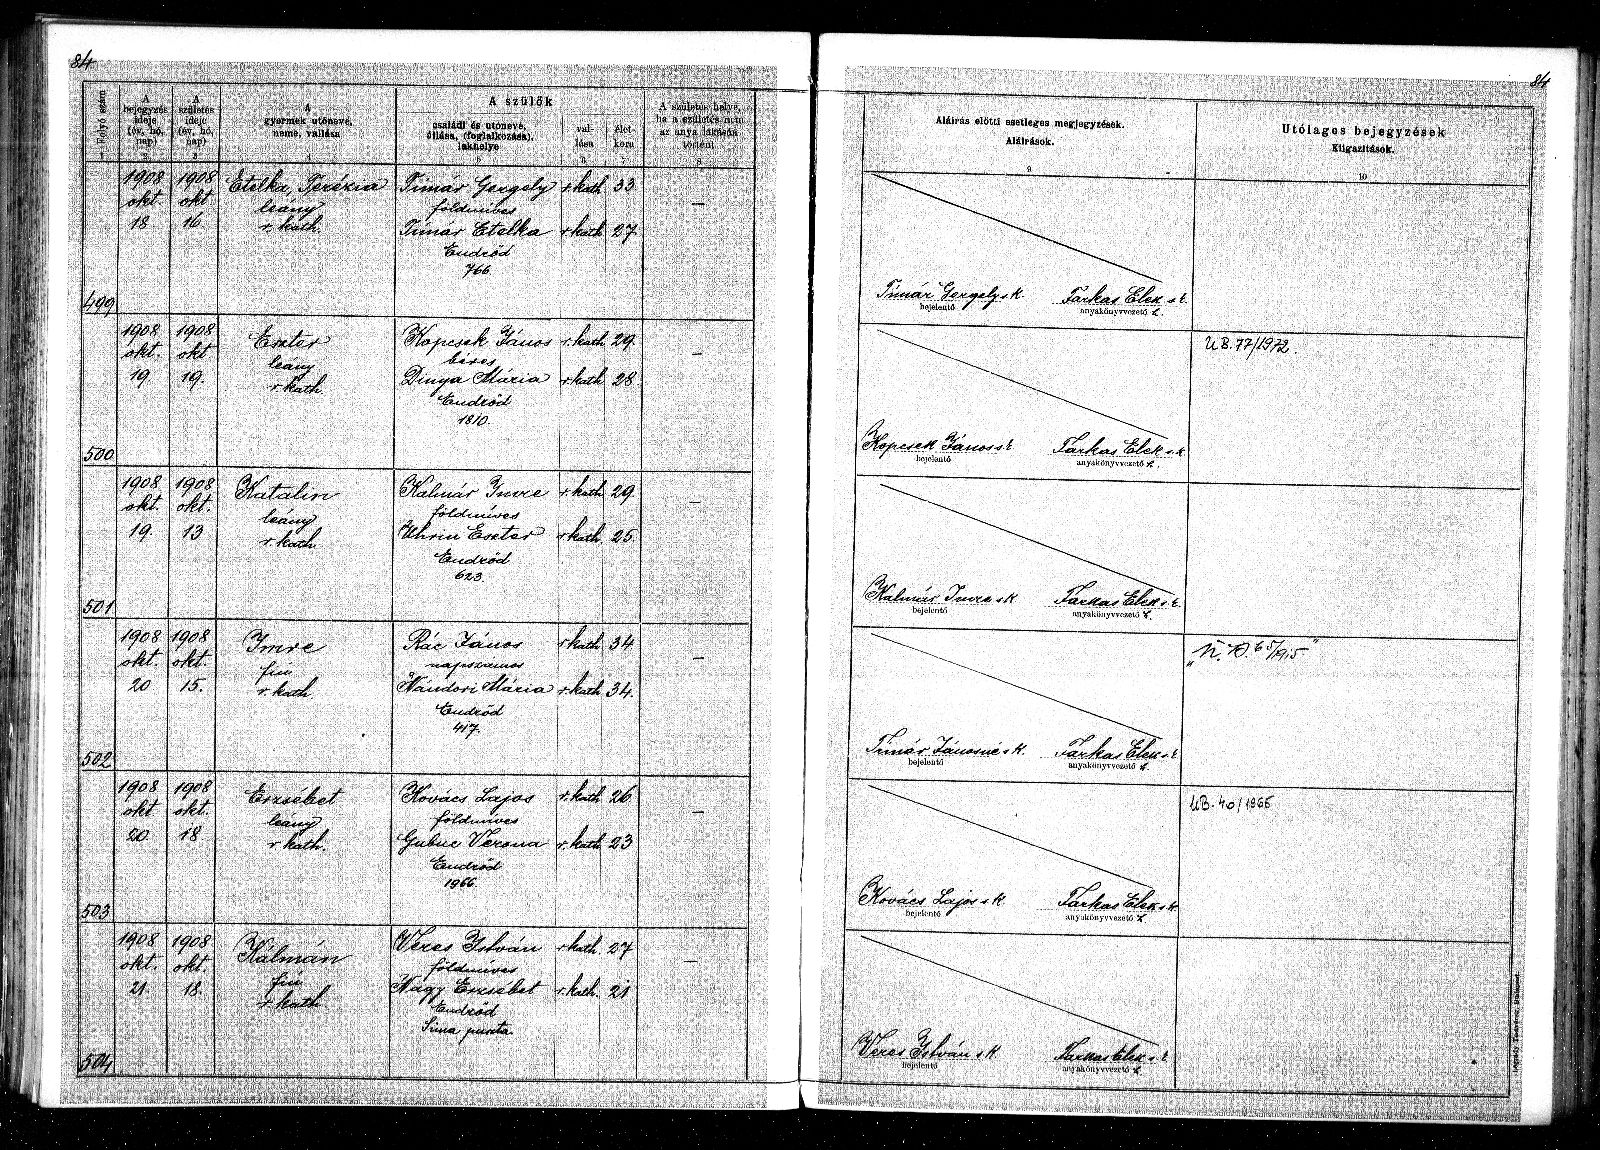 84
84
Folyó szám
A bejegyzés ideje (év, hó, nap)
A születés ideje (év, hó, nap)
A gyermek utóneve, neme, vallása
A szülők
családi és utóneve, állása, (foglalkozása), lakhelye
vallása
életkora
A születés helye, ha a születés nem az anya lakásán történt
Aláírás előtti esetleges megjegyzések.
Aláírások.
Utólagos bejegyzések
Kiigazítások.
1 2 3 4 5 6 7 8 9 10
1908 1908 Etelka, Terézia Tímár Gergely r. kath. 33
okt. okt. leány földmíves —
18 16. r. kath. Tímár Etelka r. kath. 27
Endrőd
766.
499
Tímár Gergely s.k. Farkas Elek s.k.
bejelentő anyakönyvvezető h.
1908 1908 Eszter Kopcsek János r. kath. 29.
okt. okt. leány béres —
19 19. r. kath. Dinya Mária r. kath. 28
Endrőd
1810.
500
UB. 77/1972.
Kopcsek János s.k. Farkas Elek s.k.
bejelentő anyakönyvvezető h.
1908 1908 Katalin Kalmár Imre r. kath. 29.
okt. okt. leány földmíves —
19. 13 r. kath. Uhrin Eszter r. kath. 25.
Endrőd
623.
501
Kalmár Imre s.k. Farkas Elek s.k.
bejelentő anyakönyvvezető h.
1908 1908 Imre Rác János r. kath. 34
okt. okt. fiu napszámos —
20 15. r. kath. Nándori Mária r. kath. 34.
Endrőd
417.
502
65/915"
Tímár Jánosné s.k. Farkas Elek s.k.
bejelentő anyakönyvvezető h.
1908 1908 Erzsébet Kovács Lajos r. kath. 26
okt. okt. leány földmíves
20 18. r. kath. Gubuc Verona r. kath. 23
Endrőd
1966.
503
UB. 40/1966
Kovács Lajos s.k. Farkas Elek s.k.
bejelentő anyakönyvvezető h.
1908 1908 Kálmán Veres István r. kath. 27
okt. okt. fiu földmíves —
21. 18. r. kath. Nagy Erzsébet r. kath. 21
Endrőd
Sima puszta.
504
Veres István s.k. Farkas Elek s.k.
bejelentő anyakönyvvezető h.